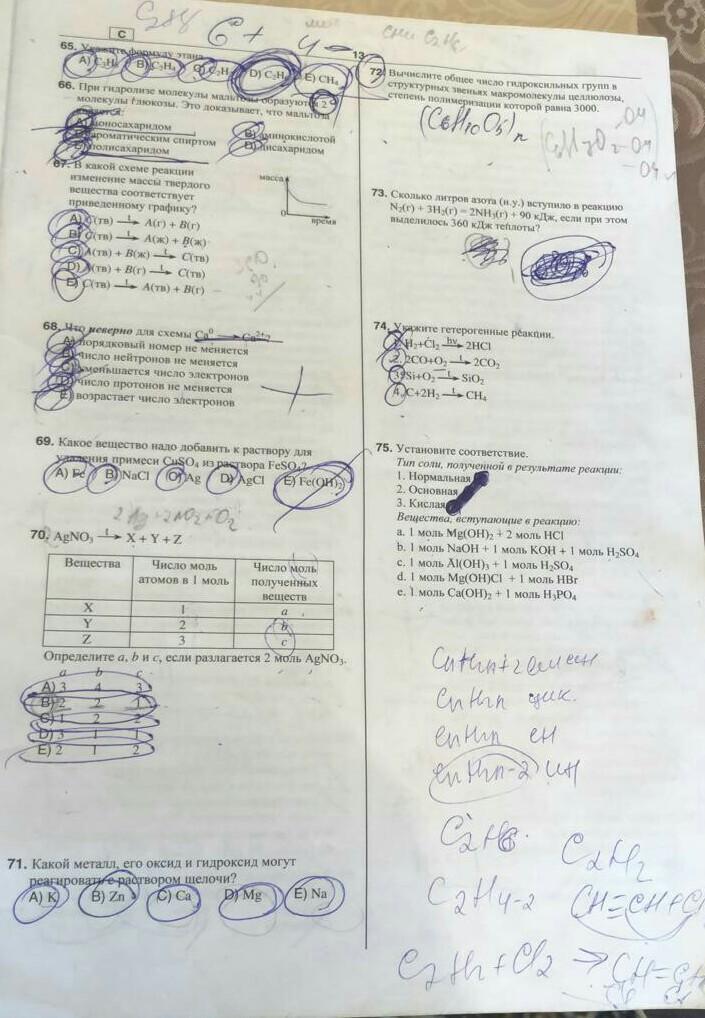 C
13
65. Укажите формулу этана.
D) C₂H₆ E) CH₄
66. При гидролизе молекулы мальтозы образуются 2
молекулы глюкозы. Это доказывает, что мальтоза
является:
A) моносахаридом
B) аминокислотой
C) ароматическим спиртом
D) дисахаридом
E) полисахаридом
67. В какой схеме реакции
изменение массы твердого
вещества соответствует
приведенному графику?
масса
0
время
A) C(тв) t→ A(г) + B(г)
B) C(тв) t→ A(ж) + B(ж)
C) A(тв) + B(ж) t→ C(тв)
D) A(тв) + B(г) t→ C(тв)
E) C(тв) t→ A(тв) + B(г)
68. Что неверно для схемы Ca⁰ → Ca²⁺?
A) порядковый номер не меняется
B) число нейтронов не меняется
C) уменьшается число электронов
D) число протонов не меняется
E) возрастает число электронов
69. Какое вещество надо добавить к раствору для
удаления примеси CuSO₄ из раствора FeSO₄?
A) Fe B) NaCl C) Ag D) AgCl E) Fe(OH)₂
70. AgNO₃ t→ X + Y + Z
Вещества Число моль атомов в 1 моль Число моль полученных веществ
X 1 a
Y 2 b
Z 3 c
Определите a, b и c, если разлагается 2 моль AgNO₃.
a b c
A) 3 4 3
B) 2 2 1
C) 1 2 2
D) 3 1 1
E) 2 1 2
71. Какой металл, его оксид и гидроксид могут
реагировать с раствором щелочи?
A) K B) Zn C) Ca D) Mg E) Na
72. Вычислите общее число гидроксильных групп в
структурных звеньях макромолекулы целлюлозы,
степень полимеризации которой равна 3000.
(C6H10O5)n
73. Сколько литров азота (н.у.) вступило в реакцию
N₂(г) + 3H₂(г) = 2NH₃(г) + 90 кДж, если при этом
выделилось 360 кДж теплоты?
74. Укажите гетерогенные реакции.
1. H₂+Cl₂ hν→ 2HCl
2. 2CO+O₂ t→ 2CO₂
3. Si+O₂ t→ SiO₂
4. C+2H₂ t→ CH₄
75. Установите соответствие.
Тип соли, полученной в результате реакции:
1. Нормальная
2. Основная
3. Кислая
Вещества, вступающие в реакцию:
a. 1 моль Mg(OH)₂ + 2 моль HCl
b. 1 моль NaOH + 1 моль KOH + 1 моль H₂SO₄
c. 1 моль Al(OH)₃ + 1 моль H₂SO₄
d. 1 моль Mg(OH)Cl + 1 моль HBr
e. 1 моль Ca(OH)₂ + 1 моль H₃PO₄
CnHn цик.
C2H6
C2H2
C2H4-2
C2H2+Cl2 →